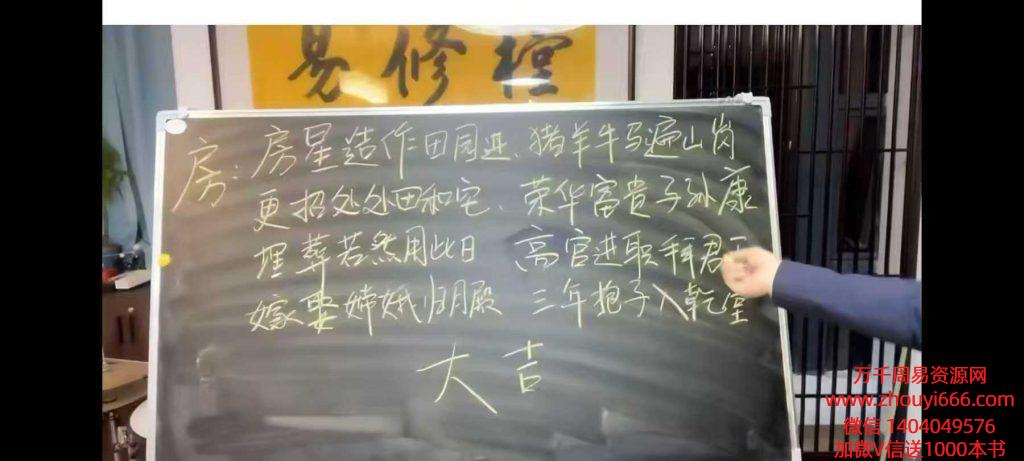 易修桓
房:房星造作田园进、猪羊牛马遍山岗
更招处处田和宅、荣华富贵子孙康
埋葬若然用此日 高官进职拜君王
嫁娶嫦娥归月殿 三年抱子入乾堂
大吉
万千周易资源网
www.zhouyi666.com
微信 1404049576
加微V信送1000本书